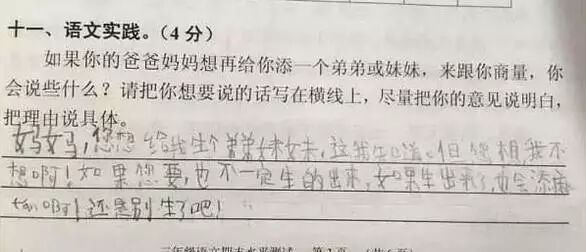 十一、语文实践。(4分)
如果你的爸爸妈妈想再给你添一个弟弟或妹妹，来跟你商量，你
会说些什么？请把你想要说的话写在横线上，尽量把你的意见说明白，
把理由说具体。
妈妈，您想给我生个弟弟妹妹，这我知道。但您想我不
想啊！如果您要，也不一定生的出来，如果生出来了，也会添麻
烦啊！还是别生了吧！
三年级语文期末水平测试 第7页